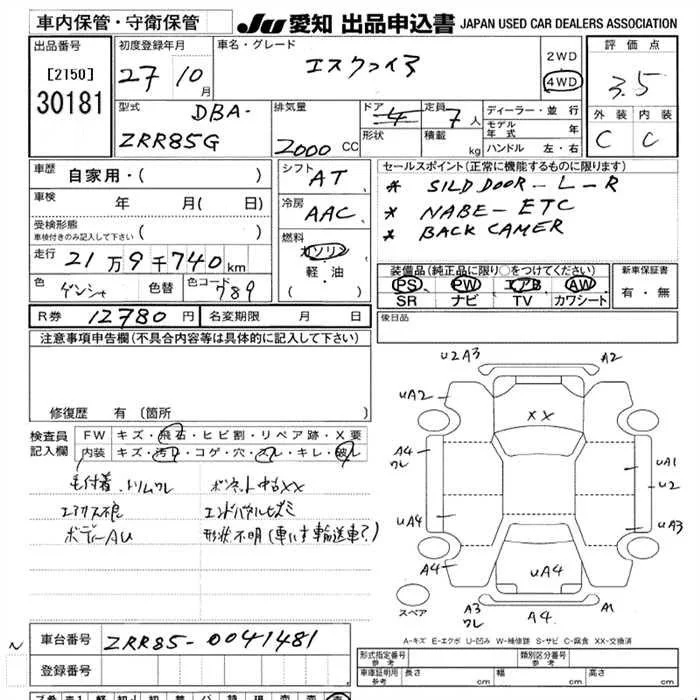 車内保管・守衛保管 JU 愛知 出品申込書 JAPAN USED CAR DEALERS ASSOCIATION
出品番号
[2150]
30181
初度登録年月
27年 10月
車名・グレード
エスクァイア
2WD
4WD
評価点
3.5
外装 内装
C C
型式
DBA-
ZRR85G
排気量
2000 CC
ドア 4
形状
定員 7人
積載 kg
ディーラー・並行
モデル年式 年
ハンドル 左・右
車歴 自家用・( )
車検 年 月( 日)
受検形態
車検付きのみ記入して下さい ( )
走行 21万9千740km
色 ゲンシャ 色替 色コード 789
シフト AT
冷房 AAC
燃料
ガソリン
軽・油
( )
セールスポイント(正常に機能するものに限ります)
* SILD DOOR-L-R
* NABE-ETC
* BACK CAMER
装備品(純正品に限り○をつけてください)
PS PW エアB AW
SR ナビ TV カワシート
新車保証書
有・無
R券 12780円 名変期限 月 日
後日品
注意事項申告欄(不具合内容等は具体的に記入して下さい)
修復歴 有(箇所 )
検査員記入欄
FW キズ・飛石・ヒビ割・リペア跡・X要
内装 キズ・汚れ・コゲ・穴・スレ・キレ・破レ
毛付着 トリムワレ ボンネット中古XX
エアクス不良 エンドパネルヒズミ
ボディーAU 形状不明(車いす輸送車?)
U2A3 A2
UA2
XX
A4
ワレ
UA1
U2
UA4 UA3
A4 UA4
スペア
A3
ワレ
A4 A1
A-キズ E-エクボ U-凹み W-補修跡 S-サビ C-腐食 XX-交換済
車台番号 ZRR85-0041481
登録番号
形式指定番号 参考
類別区分番号 参考
車庫証明用 参考 長さ cm 幅 cm 高さ cm